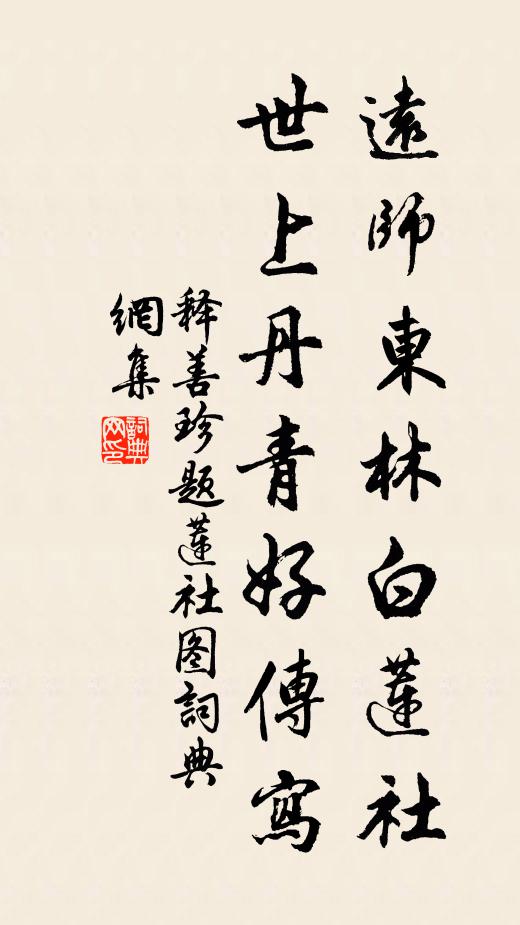 遠師東林白蓮社
世上丹青好傳寫
释善珍题蓮社图詞典
網集
詞典
网印